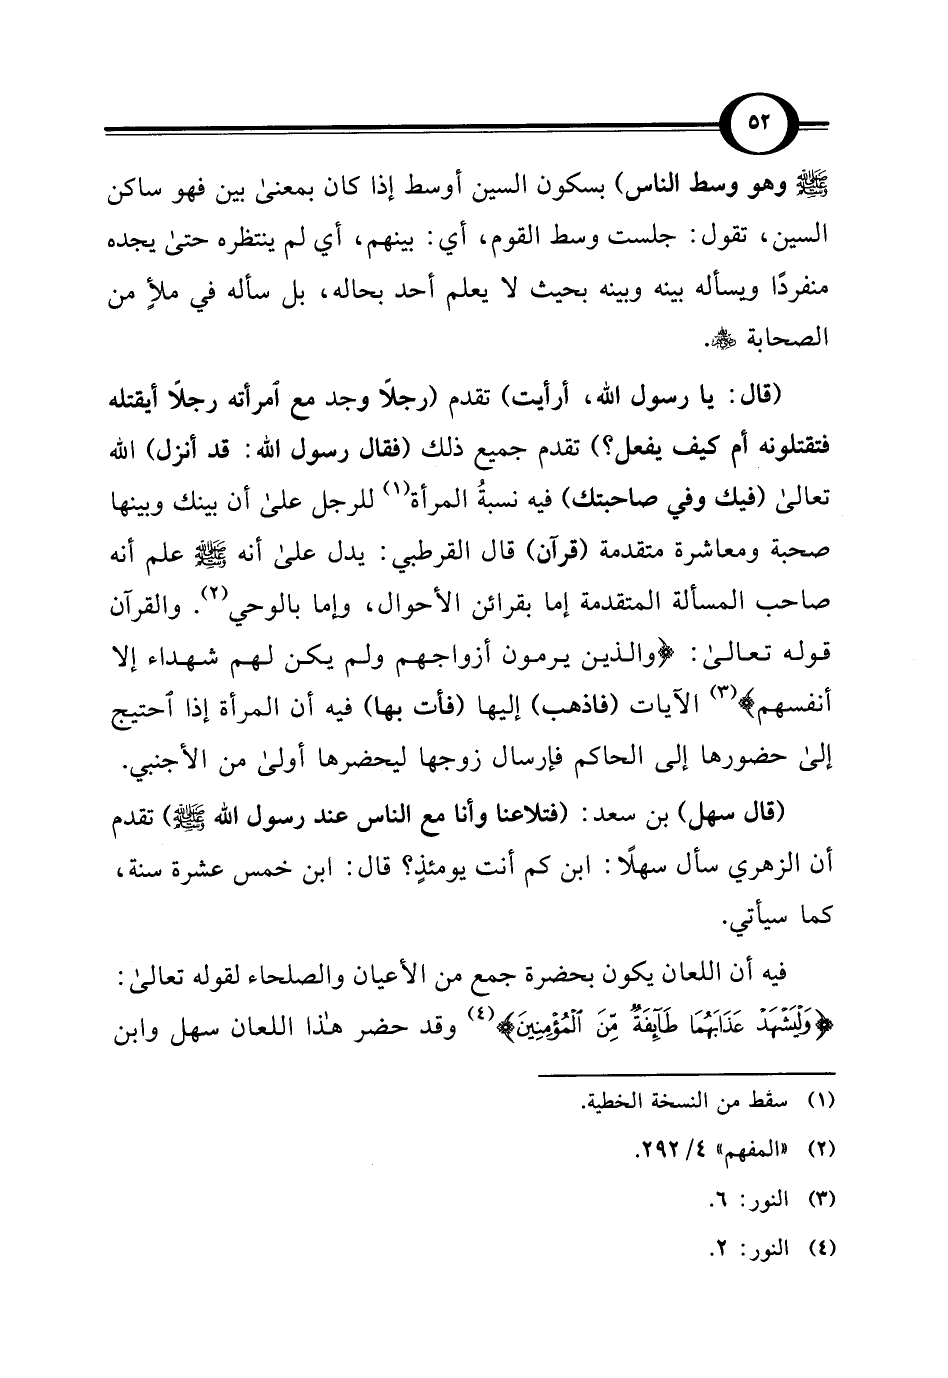 ٥٢
ﷺ وهو وسط الناس) بسكون السين أوسط إذا كان بمعنىٰ بين فهو ساكن
السين، تقول: جلست وسط القوم، أي: بينهم، أي لم ينتظره حتىٰ يجده
منفردًا ويسأله بينه وبينه بحيث لا يعلم أحد بحاله، بل سأله في ملأٍ من
الصحابة ﵃.
(قال: يا رسول الله، أرأيت) تقدم (رجلًا وجد مع ٱمرأته رجلًا أيقتله
فتقتلونه أم كيف يفعل؟) تقدم جميع ذلك (فقال رسول الله: قد أنزل) الله
تعالىٰ (فيك وفي صاحبتك) فيه نسبةُ المرأة(١) للرجل علىٰ أن بينك وبينها
صحبة ومعاشرة متقدمة (قرآن) قال القرطبي: يدل علىٰ أنه ﷺ علم أنه
صاحب المسألة المتقدمة إما بقرائن الأحوال، وإما بالوحي(٢). والقرآن
قوله تعالىٰ: ﴿والذين يرمون أزواجهم ولم يكن لهم شهداء إلا
أنفسهم﴾(٣) الآيات (فاذهب) إليها (فأت بها) فيه أن المرأة إذا ٱحتيج
إلىٰ حضورها إلى الحاكم فإرسال زوجها ليحضرها أولىٰ من الأجنبي.
(قال سهل) بن سعد: (فتلاعنا وأنا مع الناس عند رسول الله ﷺ) تقدم
أن الزهري سأل سهلًا: ابن كم أنت يومئذٍ؟ قال: ابن خمس عشرة سنة،
كما سيأتي.
فيه أن اللعان يكون بحضرة جمع من الأعيان والصلحاء لقوله تعالىٰ:
﴿وَلْيَشْهَدْ عَذَابَهُمَا طَآئِفَةٌ مِّنَ ٱلْمُؤْمِنِينَ﴾(٤) وقد حضر هٰذا اللعان سهل وابن
(١) سقط من النسخة الخطية.
(٢) «المفهم» ٤/ ٢٩٢.
(٣) النور: ٦.
(٤) النور: ٢.